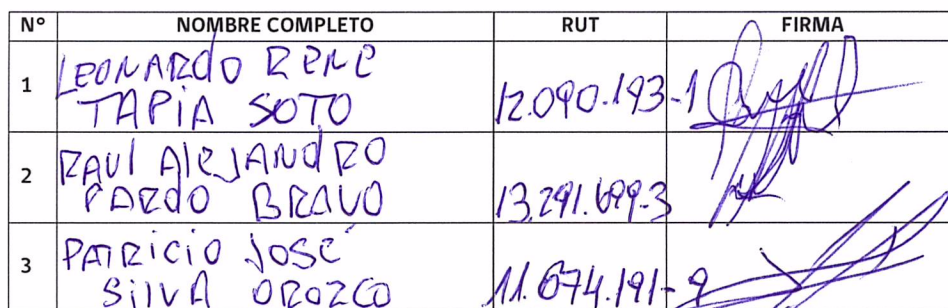 N° NOMBRE COMPLETO RUT FIRMA
1 LEONARDO RENE
TAPIA SOTO 12.090.193-1
2 RAUl AleJANDRO
PARDO BRAVO 13.291.699-3
3 PATRICIO JOSÉ
SilVA OROZCO 11.674.191-9